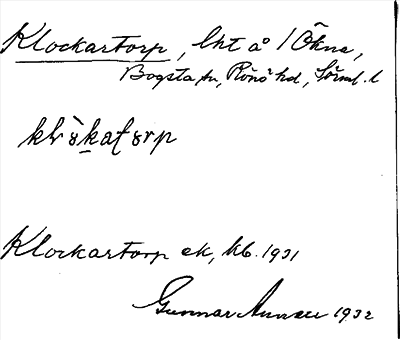 Klockartorp, lht å 1 Ökna,
Bogsta sn, Rönö hd, Sörml. l
Klockartorp ek, kb. 1931
Gunnar 1932